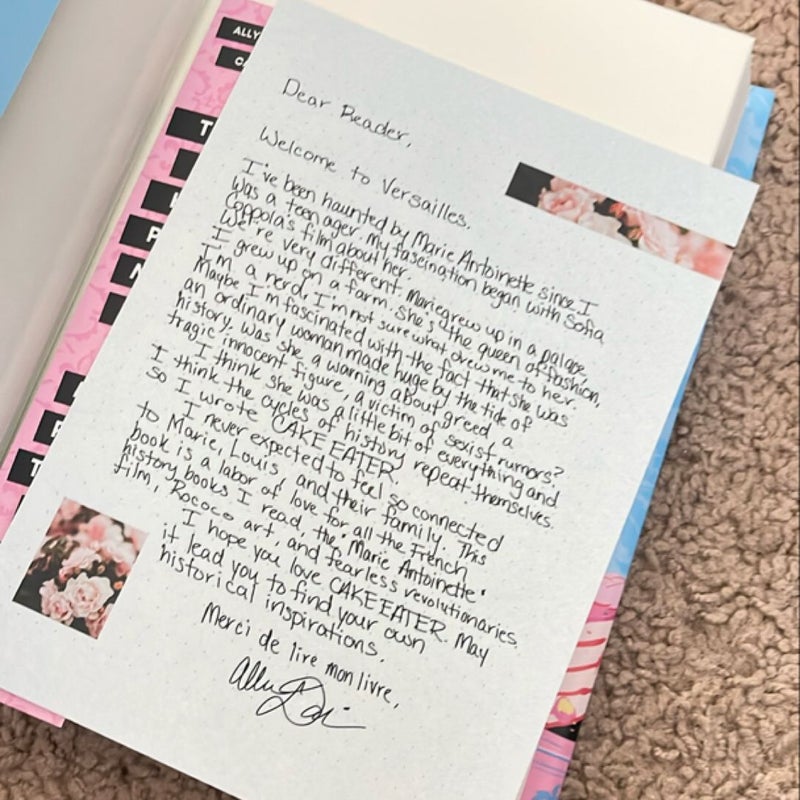 ALLY
Dear Reader,
Welcome to Versailles.
I've been haunted by Marie Antoinette since I
was a teenager. My fascination began with Sofia
Coppola's film about her.
We're very different. Marie grew up in a palace.
I grew up on a farm. She's the queen of fashion,
I'm a nerd. I'm not sure what drew me to her.
Maybe I'm fascinated with the fact that she was
an ordinary woman made huge by the tide of
history. Was she a warning about greed a
tragic innocent figure, a victim of sexist rumors?
I think she was a little bit of everything and
I think the cycles of history repeat themselves.
So I wrote CAKE EATER.
I never expected to feel so connected
to Marie, Louis, and their family. This
book is a labor of love for all the French
history books I read, the "Marie Antoinette"
film, Rococo art, and fearless revolutionaries.
I hope you love CAKE EATER. May
it lead you to find your own
historical inspirations.
Merci de lire mon livre,